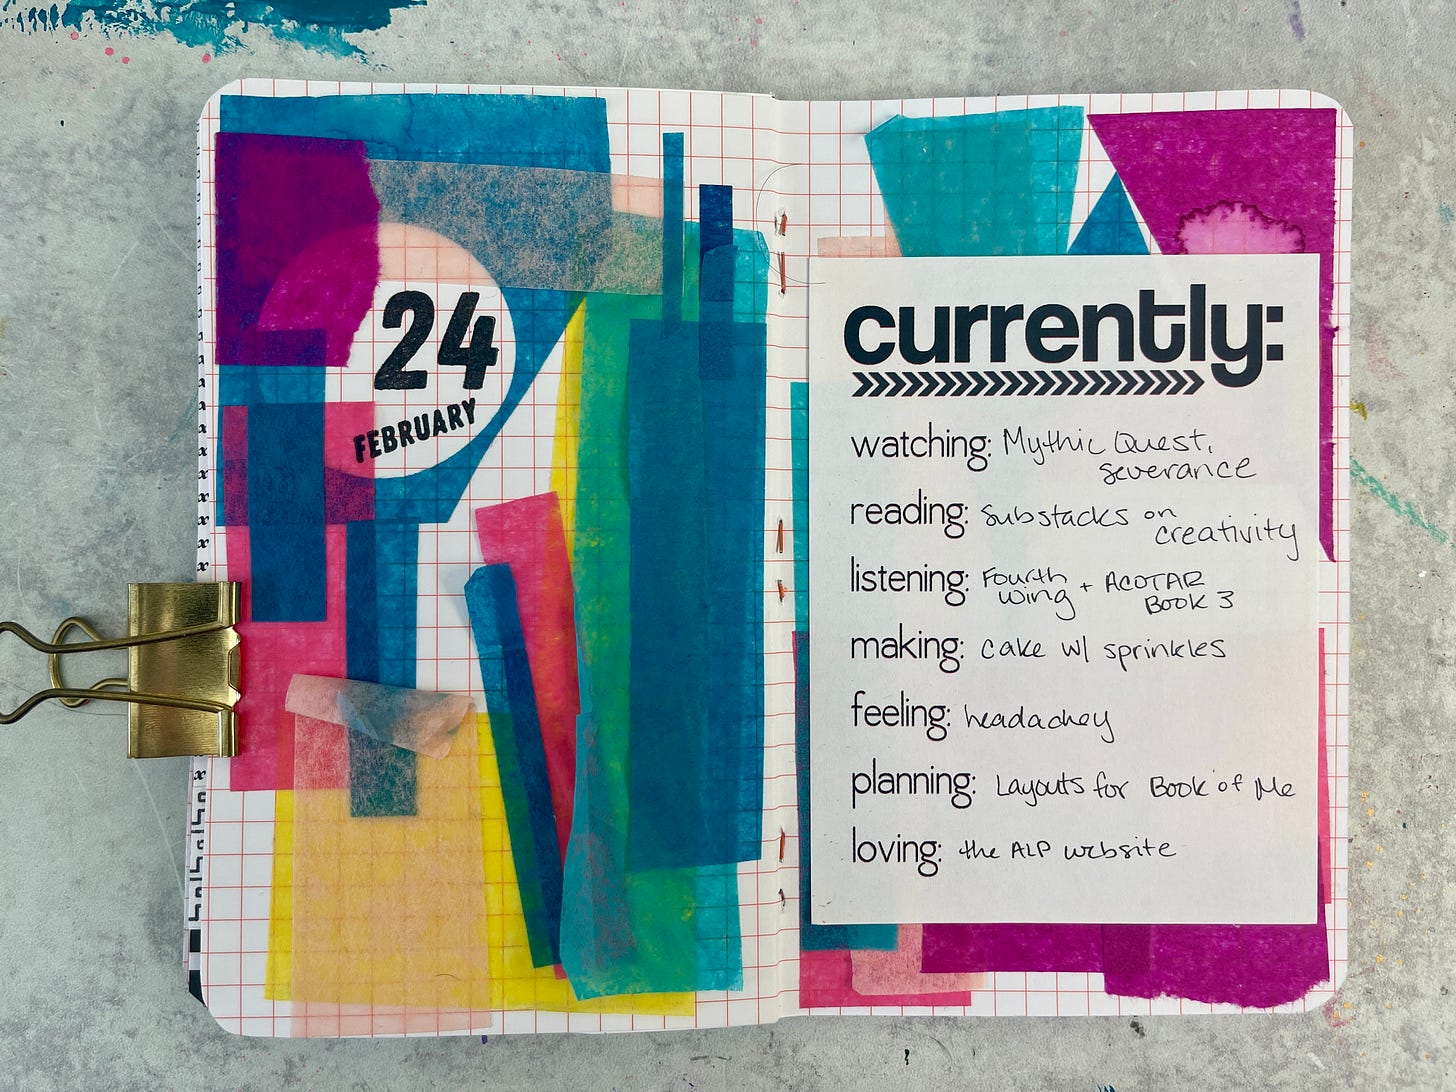 24
FEBRUARY
currently:
watching: Mythic Quest,
severance
reading: Substacks on
creativity
listening: Fourth
wing + ACOTAR
Book 3
making: cake w/ sprinkles
feeling: headachey
planning: Layouts for Book of Me
loving: the ALP website